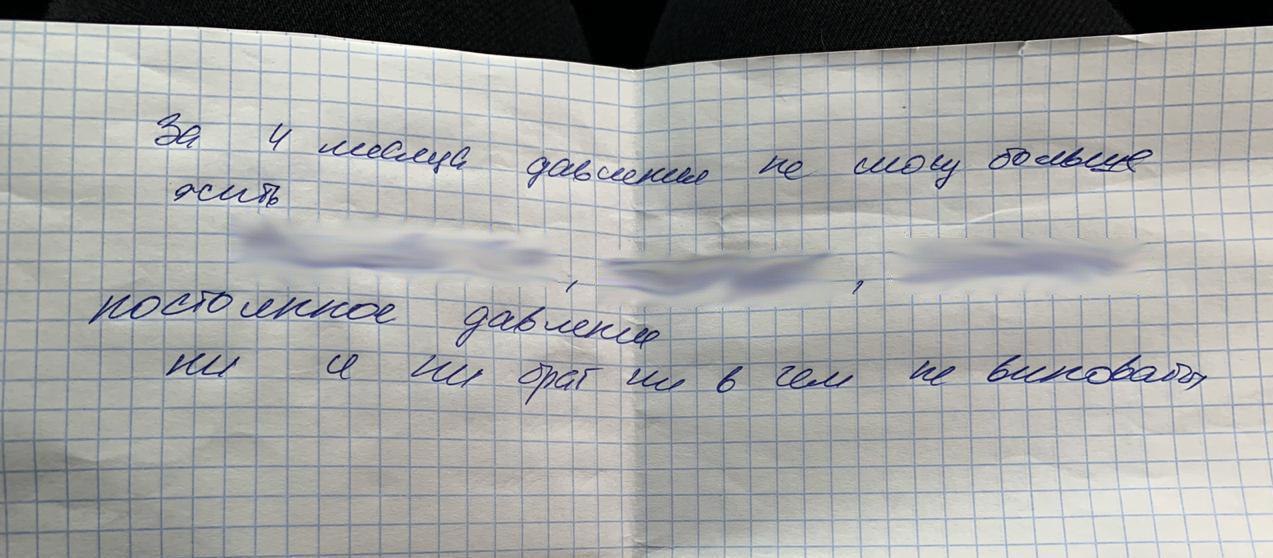 За 4 месяца давления не могу больше
жить
, ,
постоянное давление
ни я ни брат ни в чем не виноваты